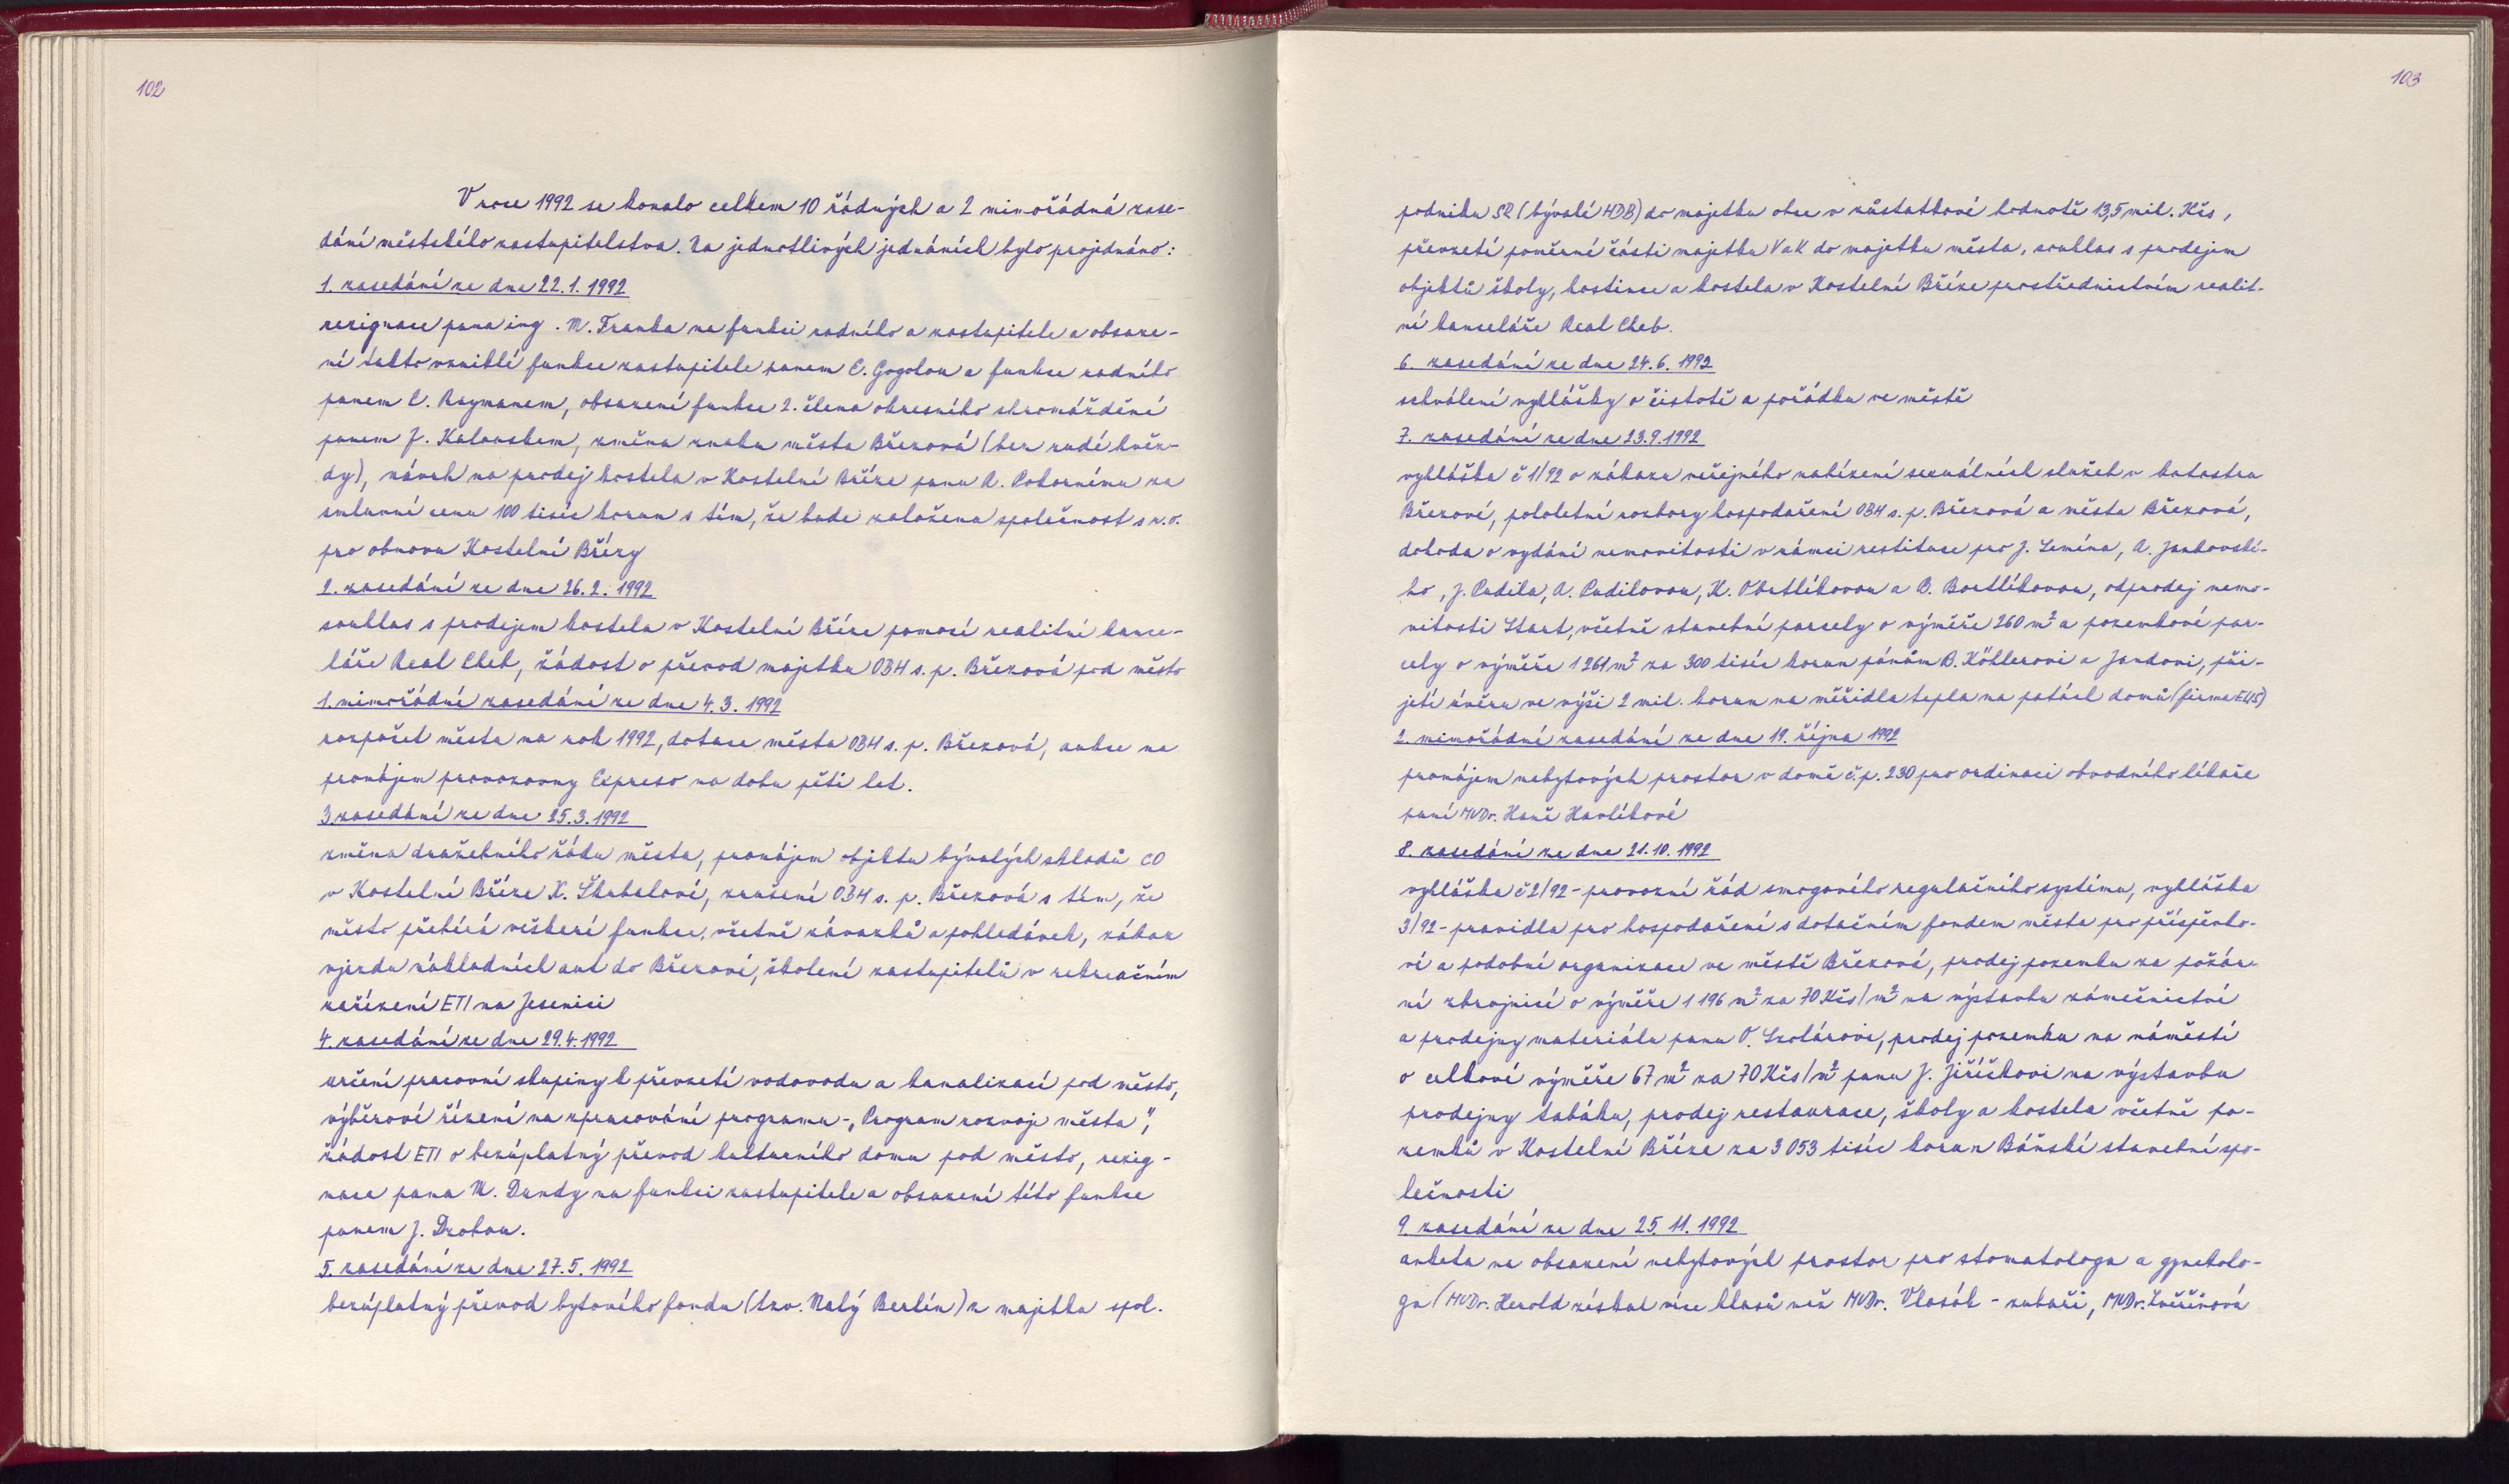 102
V roce 1992 se konalo celkem 10 řádných a 2 mimořádná zase-
dání městského zastupitelstva. Na jednotlivých jednáních bylo projednáno:
1. zasedání ze dne 22.1.1992
rezignace pana ing. M. Franka na funkci radního a zastupitele a obsaze-
ní takto vzniklé funkce zastupitele panem E. Gogolou a funkce radního
panem E. Raymanem, obsazení funkce 2. člena okresního shromáždění
panem J. Kalouskem, změna znaku města Březová (bez rudé hvěz-
dy), návrh na prodej kostela v Kostelní Bříze panu R. Pokornému za
smluvní cenu 100 tisíc korun s tím, že bude založena společnost s r.o.
pro obnovu Kostelní Břízy
2. zasedání ze dne 26.2.1992
souhlas s prodejem kostela v Kostelní Bříze pomocí realitní kance-
láře Real Cheb, žádost o převod majetku OBH s.p. Březová pod město
1. mimořádné zasedání ze dne 4.3.1992
rozpočet města na rok 1992, dotace města OBH s.p. Březová, aukce na
pronájem provozovny Expreso na dobu pěti let.
3. zasedání ze dne 25.3.1992
změna dražebního řádu města, pronájem objektu bývalých skladů CO
v Kostelní Bříze K. Škubalové, zrušení OBH s.p. Březová s tím, že
město přebírá veškeré funkce, včetně závazků a pohledávek, zákaz
vjezdu nákladních aut do Březové, školení zastupitelů v rekreačním
zařízení ETI na Jesenici
4. zasedání ze dne 29.4.1992
určení pracovní skupiny k převzetí vodovodu a kanalizací pod město,
výběrové řízení na zpracování programu - „Program rozvoje města",
žádost ETI o bezúplatný převod kulturního domu pod město, rezig-
nace pana M. Dundy na funkci zastupitele a obsazení této funkce
panem J. Drobou.
5. zasedání ze dne 27.5.1992
bezúplatný převod bytového fondu (tzv. Malý Berlín) z majetku spol.
103
podniku SR (bývalé HDB) do majetku obce v zůstatkové hodnotě 13,5 mil. Kčs,
převzetí poměrné části majetku VaK do majetku města, souhlas s prodejem
objektů školy, hostince a kostela v Kostelní Bříze prostřednictvím realit-
ní kanceláře Real Cheb.
6. zasedání ze dne 24.6.1992
schválení vyhlášky o čistotě a pořádku ve městě
7. zasedání ze dne 23.9.1992
vyhláška č 1/92 o zákazu veřejného nabízení sexuálních služeb v katastru
Březové, pololetní rozbory hospodaření OBH s.p. Březová a města Březová,
dohoda o vydání nemovitosti v rámci restituce pro J. Semína, A. Jankovské-
ho, J. Pudila, A. Pudilovou, K. Obrtlíkovou a B. Bortlíkovou, odprodej nemo-
vitosti Start, včetně stavební parcely o výměře 260 m² a pozemkové par-
cely o výměře 1261 m² za 300 tisíc korun pánům B. Köhlerovi a Jandovi, při-
jetí úvěru ve výši 2 mil. korun na měřidla tepla na patách domů (firma EUS)
2. mimořádné zasedání ze dne 19. října 1992
pronájem nebytových prostor v domě č.p. 230 pro ordinaci obvodního lékaře
paní MUDr. Haně Havlíkové
8. zasedání ze dne 21.10.1992
vyhláška č 2/92 - provozní řád smogového regulačního systému, vyhláška
3/92 - pravidla pro hospodaření s dotačním fondem města pro příspěvko-
vé a podobné organizace ve městě Březová, prodej pozemku za požár-
ní zbrojnicí o výměře 1 196 m² za 70 Kčs/m² na výstavbu zámečnictví
a prodejny materiálu panu O. Szolárovi, prodej pozemku na náměstí
o celkové výměře 67 m² za 70 Kčs/m² panu J. Jiříčkovi na výstavbu
prodejny tabáku, prodej restaurace, školy a kostela včetně po-
zemků v Kostelní Bříze za 3 053 tisíc korun Báňské stavební spo-
lečnosti
9. zasedání ze dne 25.11.1992
anketa na obsazení nebytových prostor pro stomatologa a gynekolo-
ga (MUDr. Herold získal více hlasů než MUDr. Vlasák - zubaři, MUDr. Zvěřinová